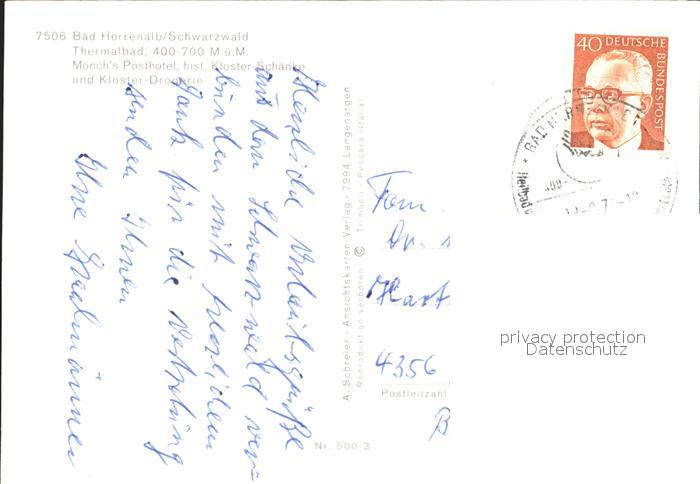 7506 Bad Herrenalb/Schwarzwald
Thermalbad, 400-700 M.ü.M.
Mönch's Posthotel, hist. Kloster-Schänke
und Kloster-Drogerie
Herzliche Urlaubsgrüße
aus dem Schwarzwald ver-
bunden mit herzlichem
Dank für die Vertretung
senden Ihnen
Ihre
A. Schreyer, Ansichtskarten Verlag, 7994 Langenargen
Reproduktion verboten © Trimboli, Pescara (Italia)
Nr. 500-3
40 DEUTSCHE
BUNDESPOST
BAD HERRENALB
Fam.
Dr.
4356
Postleitzahl
B
privacy protection
Datenschutz